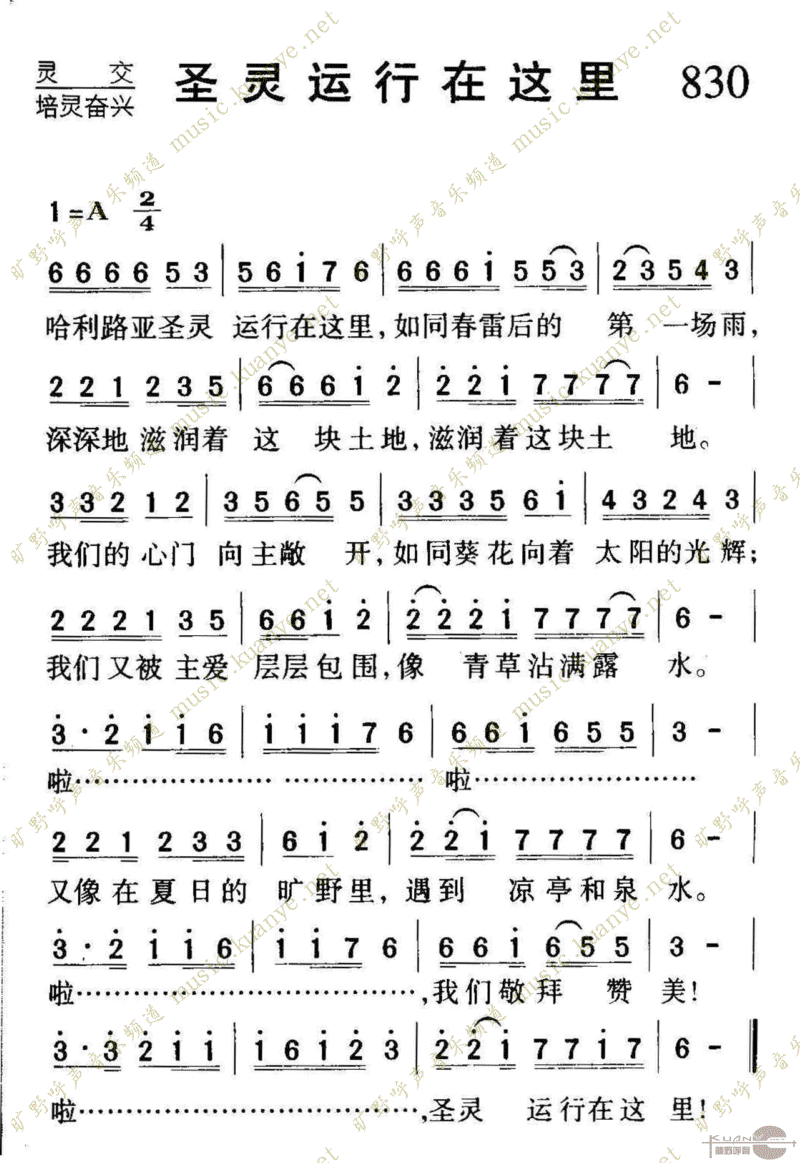 灵 交 圣灵运行在这里 830
培灵奋兴
1=A 2/4
6 6 6 6 5 3 | 5 6 i 7 6 | 6 6 6 i 5 5 3 | 2 3 5 4 3
哈利路亚圣灵 运行在这里,如同春雷后的 第 一场雨,
2 2 1 2 3 5 | 6 6 6 6 i 2̇ | 2̇ 2̇ i 7 7 7 7 | 6 - |
深深地 滋润着 这 块土地,滋润着这块土 地。
3 3 2 1 2 | 3 5 6 5 5 | 3 3 3 5 6 i | 4 3 2 4 3
我们的 心门 向主敞 开,如同葵花向着 太阳的光辉;
2 2 2 1 3 5 | 6 6 i 2̇ | 2̇ 2̇ 2̇ i 7 7 7 7 | 6 - |
我们又被 主爱 层层包围,像 青草沾满露 水。
3̇ · 2̇ i i 6 | i i i 7 6 | 6 6 i 6 5 5 | 3 - |
啦…………………… ……………… 啦……………………
2 2 1 2 3 3 | 6 i 2̇ | 2̇ 2̇ i 7 7 7 7 | 6 - |
又像在夏日的 旷野里, 遇到 凉亭和泉 水。
3̇ · 2̇ i i 6 | i i 7 6 | 6 6 i 6 5 5 | 3 - |
啦……………………………………,我们敬拜 赞 美!
3̇ · 3̇ 2̇ i i | i 6 i 2̇ 3̇ | 2̇ 2̇ i 7 7 7 | 6 - ‖
啦……………………………………,圣灵 运行在这 里!
旷野呼声音乐频道 music.kuanye.net